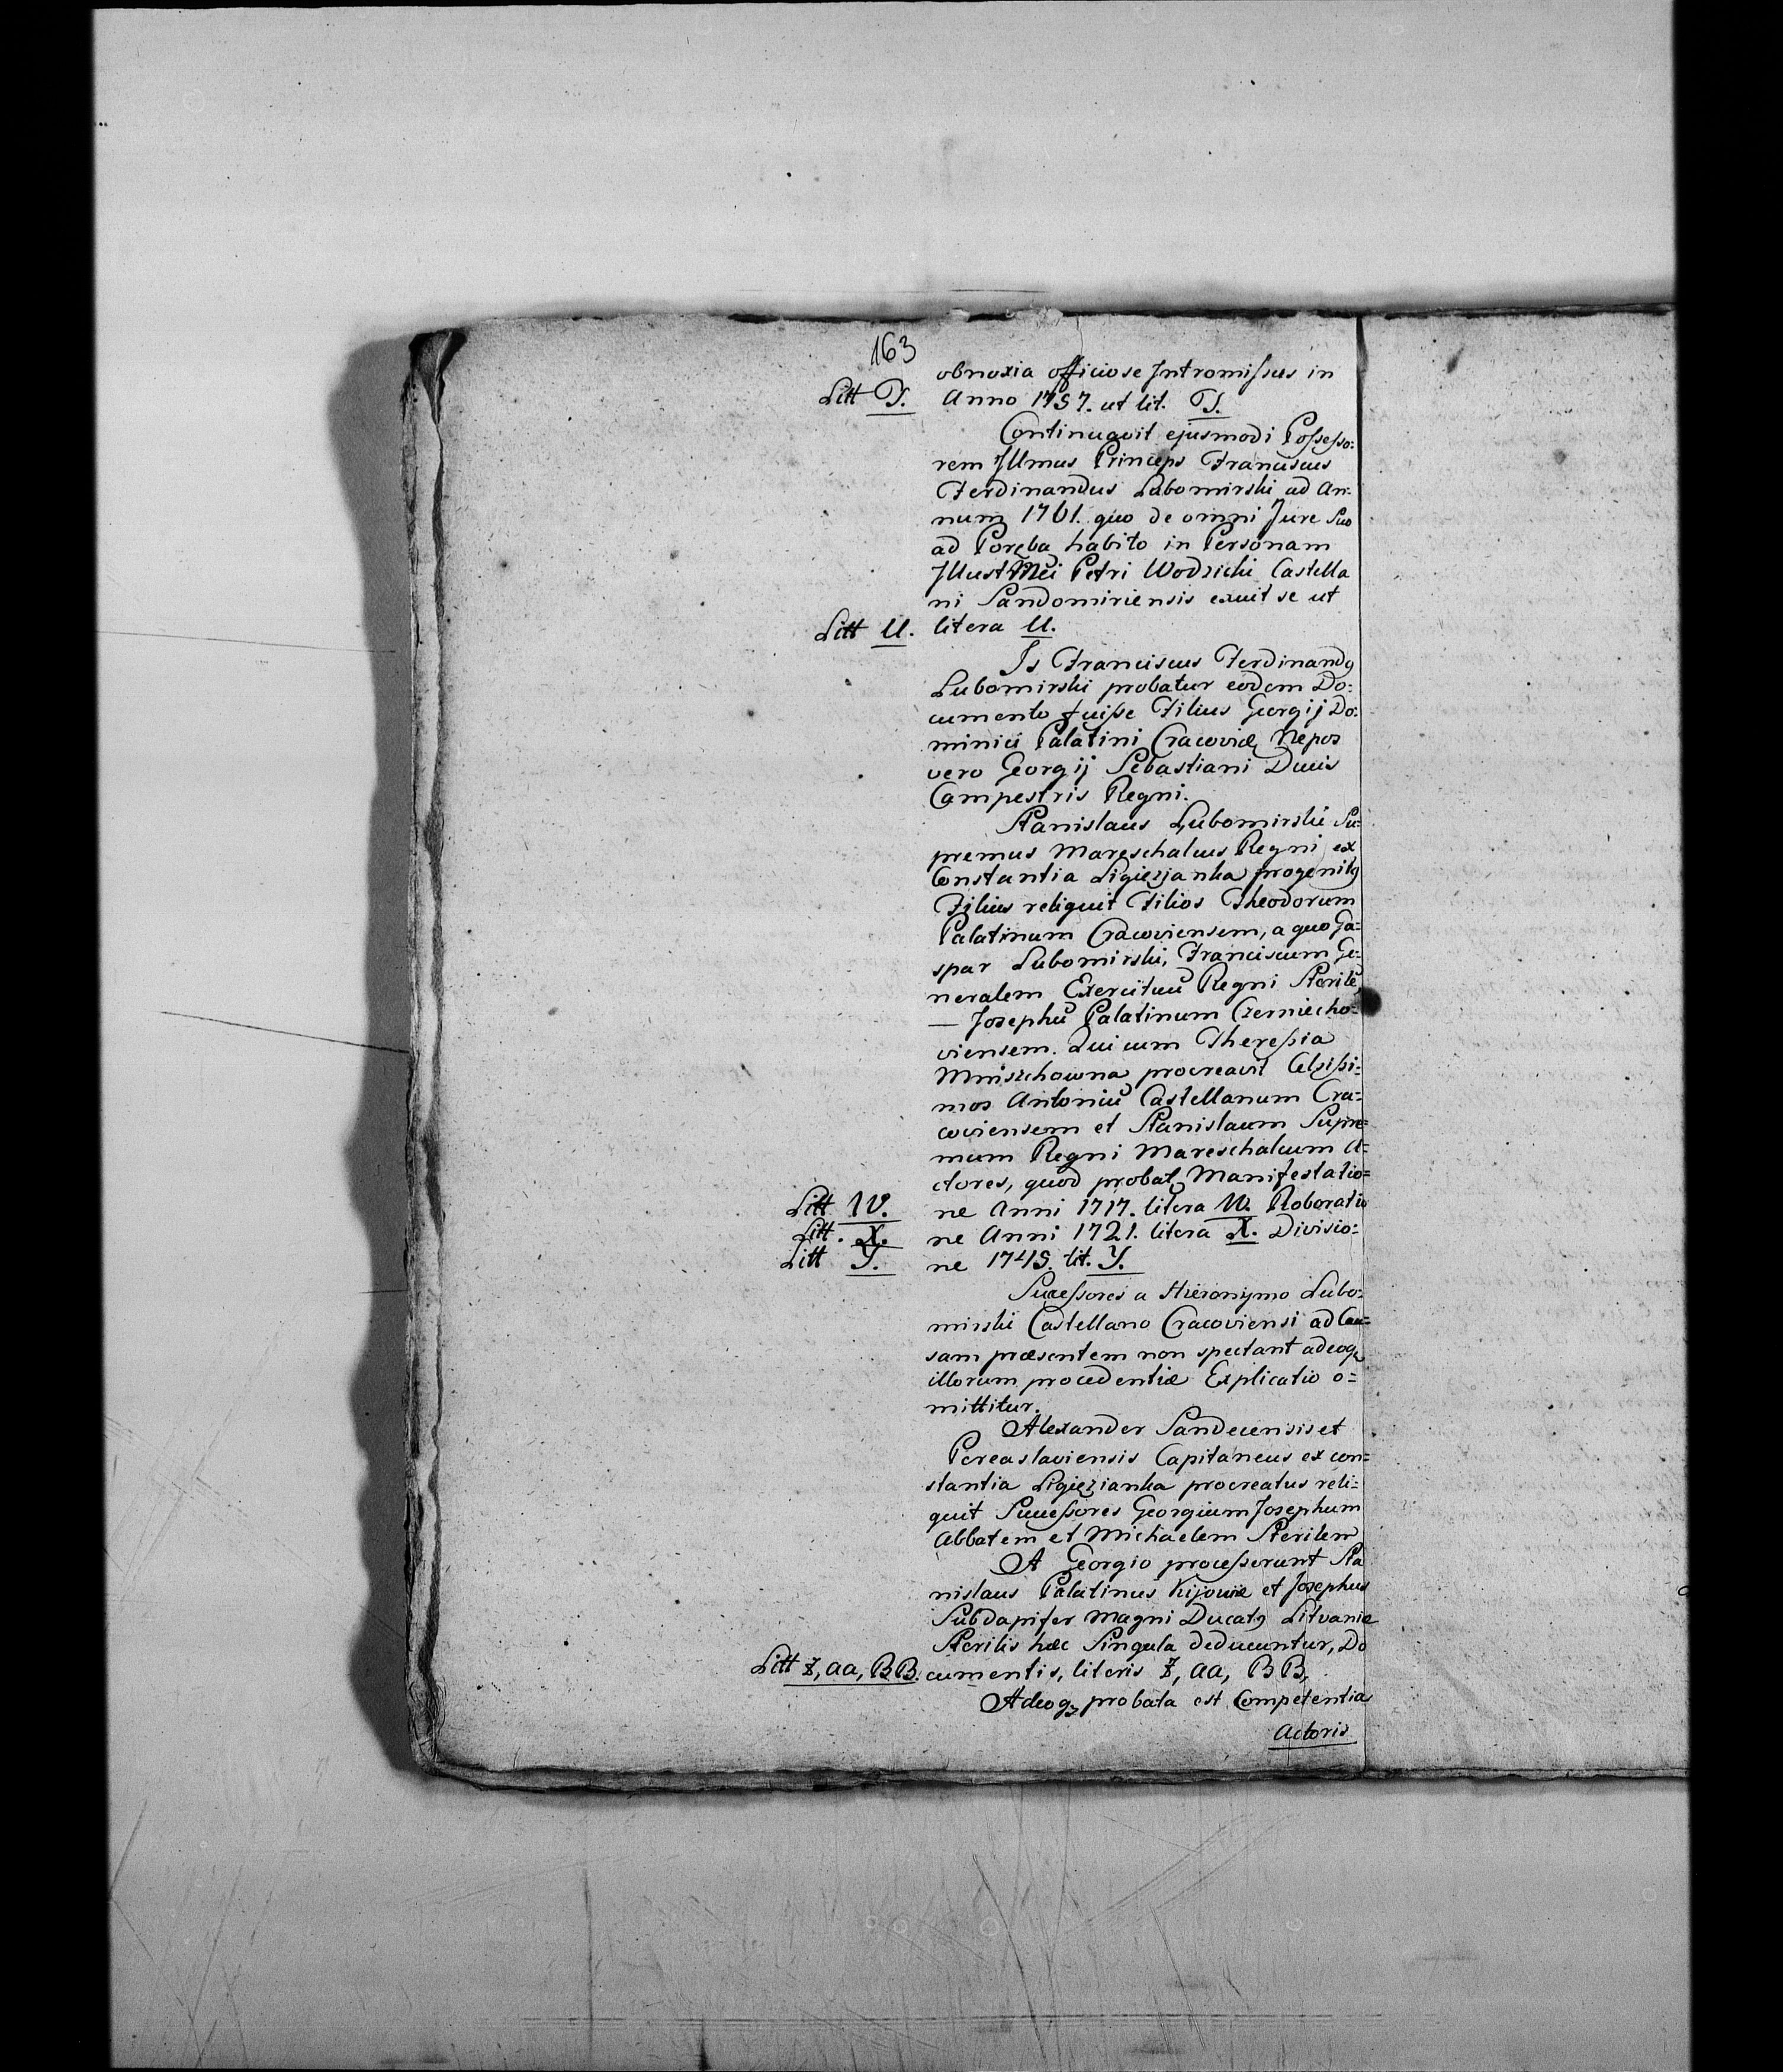 163
obnoxia officiose Intromissus in
Litt T. Anno 1757. ut lit. T.
Continuavit ejusmodi Possesso:
rem Illmus Princeps Franciscus
Ferdinandus Lubomirski ad An:
num 1761. quo de omni Jure Suo
ad Poręba habito in Personam
Petri Wodzicki Castella
ni Sandomiriensis exuit se ut
Litt U. litera U.
Is Franciscus Ferdinandꝰ
Lubomirski probatur eodem Do:
cumento fuisse Filius Georgij Do:
minici Palatini Cracoviæ, Nepos
vero Georgij Sebastiani Ducis
Campestris Regni.
Stanislaus Lubomirski Su:
premus Mareschalcus Regni ex
Constantia Ligięzianka progenitꝰ
Filius reliquit Filios Theodorum
Palatinum Cracoviensem, a quo Ga:
spar Lubomirski, Franciscum Ge:
neralem Exercituū Regni Sterilē,
— Josephū Palatinum Czerniecho:
viensem. Qui cum Theressia
Mniszchowna procreavit Celsissi:
mos Antoniū Castellanum Cra:
coviensem et Stanislaum Supre=
mum Regni Mareschalcum A=
ctores, quod probat Manifestatio=
Litt W. ne Anni 1717. litera W. Roboratio
Litt. X. ne Anni 1721. litera X. Divisio:
Litt Y. ne 1745. lit. Y.
Successores a Hieronymo Lubo:
mirski Castellano Cracoviensi ad Cau=
sam præsentem non spectant adeoqꝫ
illorum procedentiæ Explicatio o=
mittitur.
Alexander Sandecensis et
Pereaslaviensis Capitaneus ex con=
stantia Ligięzianka procreatus reli=
quit Successores Georgium Josephum
Abbatem et Michaelem Sterilem
A Georgio processerunt Sta
nislaus Palatinus Kijoviæ et Josephus
Subdapifer Magni Ducatꝰ Litvaniæ
Sterilis hæc Singula deducuntur, Do
Litt Z, aa, BB. cumentis, literis Z, aa, BB,
Adeoqꝫ probata est Competentia
Actoris